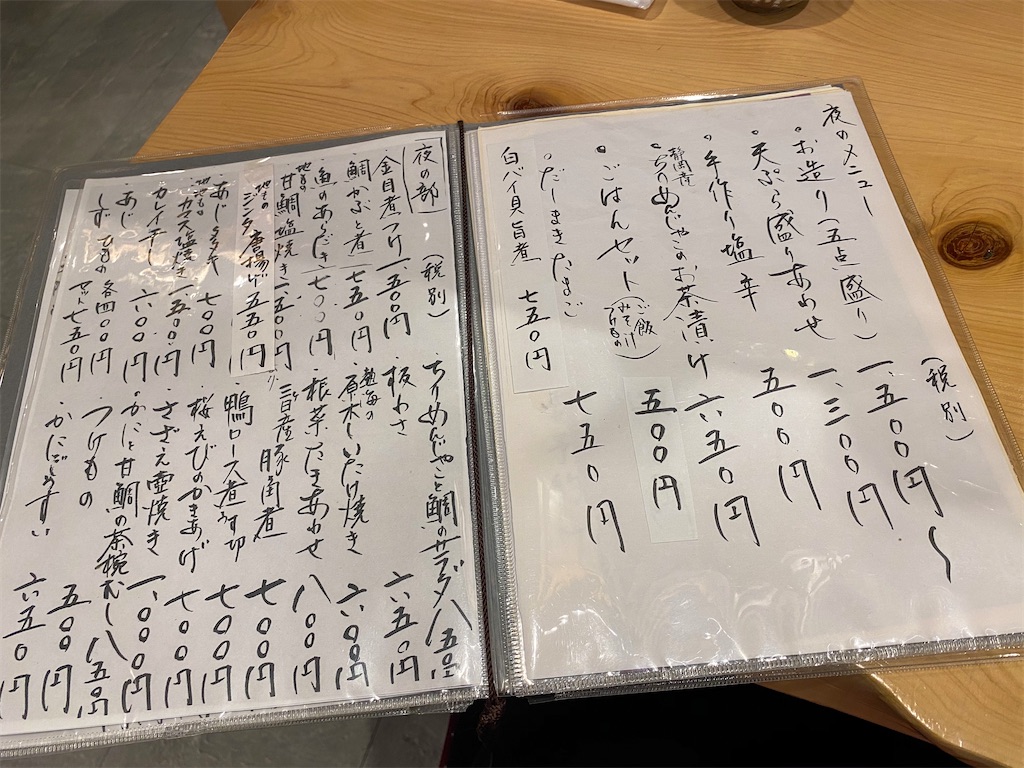 夜のメニュー
(税別)
・お造り(五点盛り) 一、五〇〇円〜
・天ぷら盛りあわせ 一、三〇〇円
・手作り塩辛 五〇〇円
静岡産
ちりめんじゃこのお茶漬け 六五〇円
・ごはんセット(ご飯 みそ汁 つけもの) 五〇〇円
・だしまきたまご 七五〇円
白バイ貝旨煮 七五〇円
夜の部 (税別)
金目煮つけ 一、五〇〇円
鯛かぶと煮 七五〇円
魚のあらだき 七〇〇円
地もの 甘鯛塩焼き 一、五〇〇円
地もの ジンタ唐揚げ 五五〇円
・あじ 七〇〇円
地もの カマス塩焼き 一、五〇円
・カレイ干し 六〇〇円
・あじ
・しず ひもの 各四〇〇円
セット七五〇円
ちりめんじゃこと鯛のサラダ 八五〇円
・板わさ 六五〇円
熱海の 原木しいたけ焼き 六〇〇円
・根菜たきあわせ 八〇〇円
三日産豚角煮 七〇〇円
・鴨ロース煮うす切 七〇〇円
・桜えびのかきあげ 七〇〇円
・さざえ壷焼き 一、〇〇〇円
・かにと甘鯛の茶碗むし 八五〇円
つけもの 五〇〇円
・かに 六五〇円